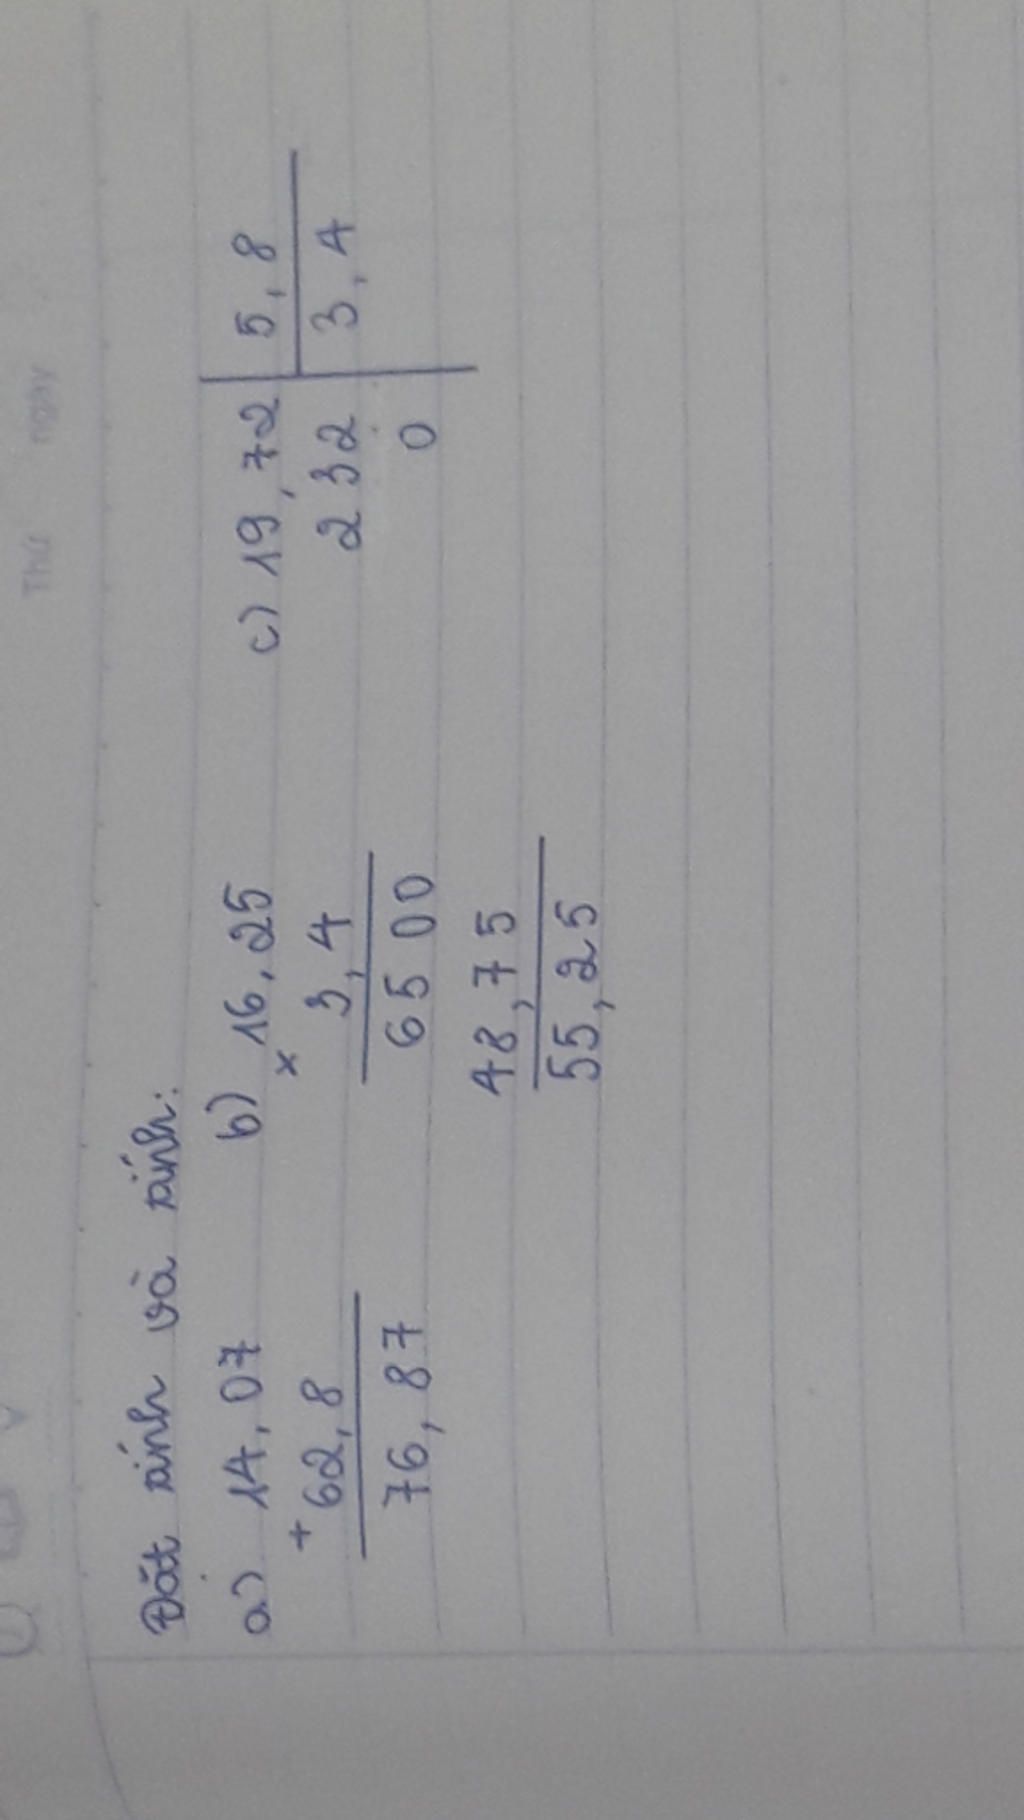 Thứ ngày
Đặt tính và tính:
a) 14,07 b) 16,25 c) 19,72 | 5,8
+ 62,8 x 3,4 232 | 3,4
76,87 6500 0
48,75
55,25